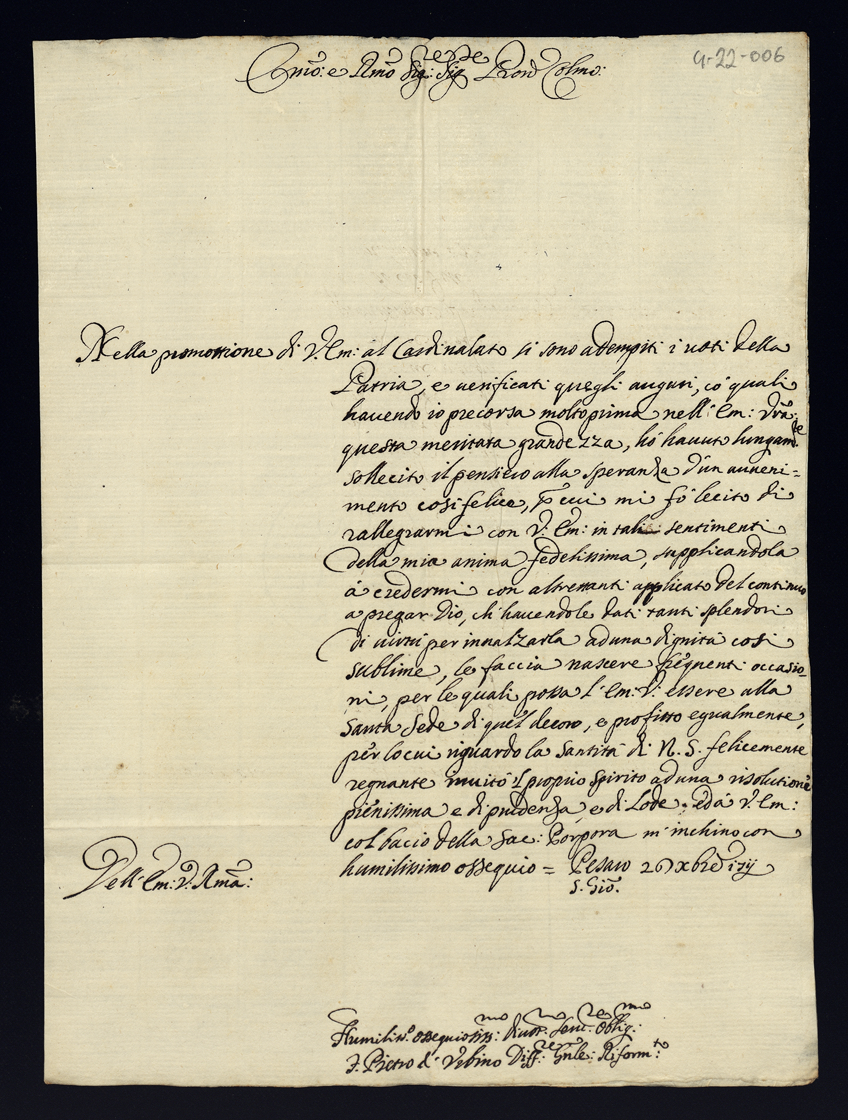 4-22-006
Emo: e Rmo Sig:re Sig:re Pron Colmo:
Nella promotione di V. Em: al Cardinalato si sono adempiti i voti della
Patria, e verificati quegli auguri, co' quali
havendo io precorsa molto prima nell' Em: Vra:
questa meritata grandezza, hò havuto lungam:te
sollecito il pensiero alla speranza d'un avveni=
mento così felice, p cui mi fò lecito di
rallegrarmi con V. Em: in tali sentimenti
della mia anima fedelissima, supplicandola
à credermi con altrettanti applicato del continuo
a pregar Dio, ch' havendole dati tanti splendori
di virtù per innalzarla ad una dignità così
sublime, le faccia nascere frequenti occasio=
ni, per le quali possa l' Em: V: essere alla
Santa Sede di quel decoro, e profitto egualmente,
per lo cui riguardo la Santità di N. S. felicemente
regnante invitò 'l proprio spirito ad una risolutione
pienissima e di prudenza, e di Lode. ed à V. Em:
col bacio della Sac: Porpora m' inchino con
humilissimo ossequio = Pesaro 26 Xbre
S. Gio.
Dell' Em: V. Rma:
Humiliss.o ossequiosiss:mo divot:mo Serv:re Oblig:mo
F. Pietro d' Urbino Diff:re Gnle: Riform:to